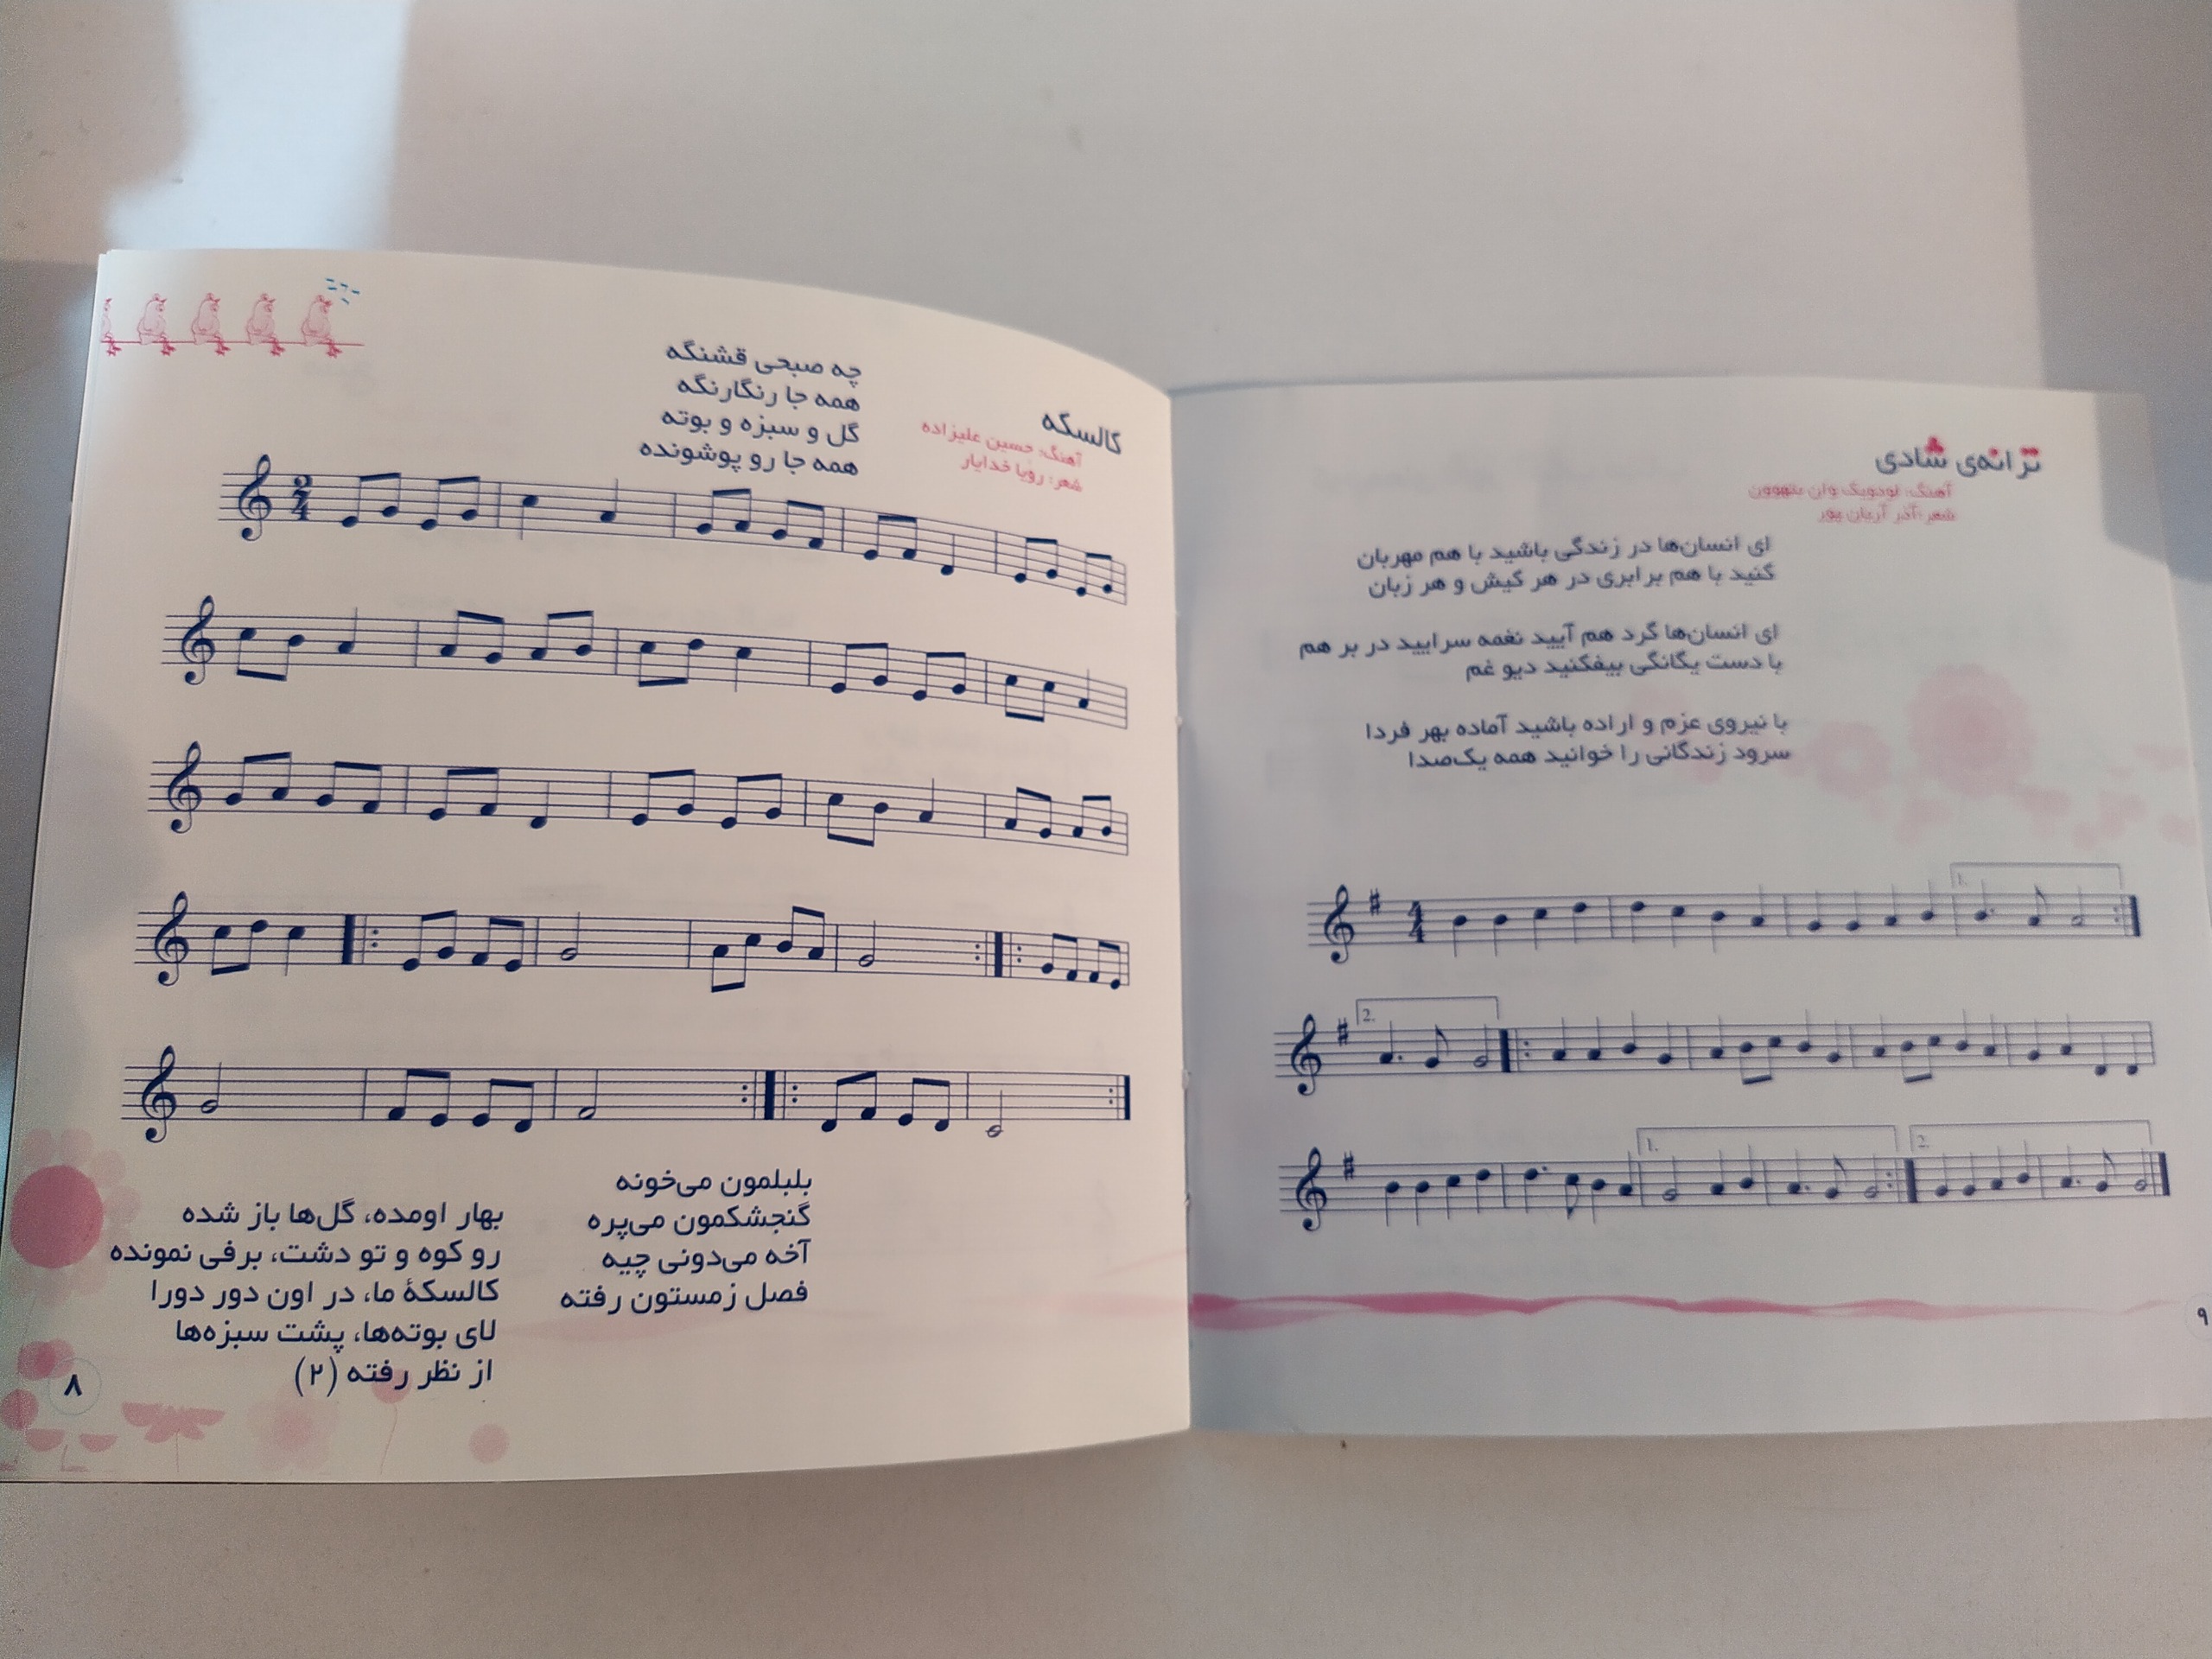 کالسکه
آهنگ: حسین علیزاده
شعر: رویا خدایار
چه صبحی قشنگه
همه جا رنگارنگه
گل و سبزه و بوته
همه جا رو پوشونده
2
4
بلبلمون می‌خونه
گنجشکمون می‌پره
آخه می‌دونی چیه
فصل زمستون رفته
بهار اومده، گل‌ها باز شده
رو کوه و تو دشت، برفی نمونده
کالسکهٔ ما، در اون دور دورا
لای بوته‌ها، پشت سبزه‌ها
از نظر رفته (۲)
۸
ترانه‌ی شادی
آهنگ: لودویگ وان بتهوون
شعر: آذر آریان پور
ای انسان‌ها در زندگی باشید با هم مهربان
کنید با هم برابری در هر کیش و هر زبان
ای انسان‌ها گرد هم آیید نغمه سرایید در بر هم
با دست یگانگی بیفکنید دیو غم
با نیروی عزم و اراده باشید آماده بهر فردا
سرود زندگانی را خوانید همه یک‌صدا
4
4
1.
2.
1.
2.
۹